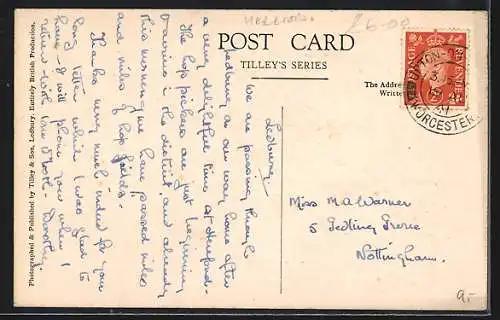 HEREFORDS.
£6-00
POST CARD
TILLEY'S SERIES
The Addre
Writte
Ledbury.
We are passing through
Ledbury on our way home after
a very delightful time at Hereford.
The hop pickers are just beginning
to arrive in the district and already
this morning we have passed miles
and miles of hop fields.
Thanks very much indeed for your
long letter which I was glad to
have - I will phone you when I
return - with love & both - Dorothy
Miss M A Warner
5 Gedling Grove
Nottingham.
Photographed & Published by Tilley & Son, Ledbury, Entirely British Production.
POSTAGE
REVENUE
WORCESTER
9,-